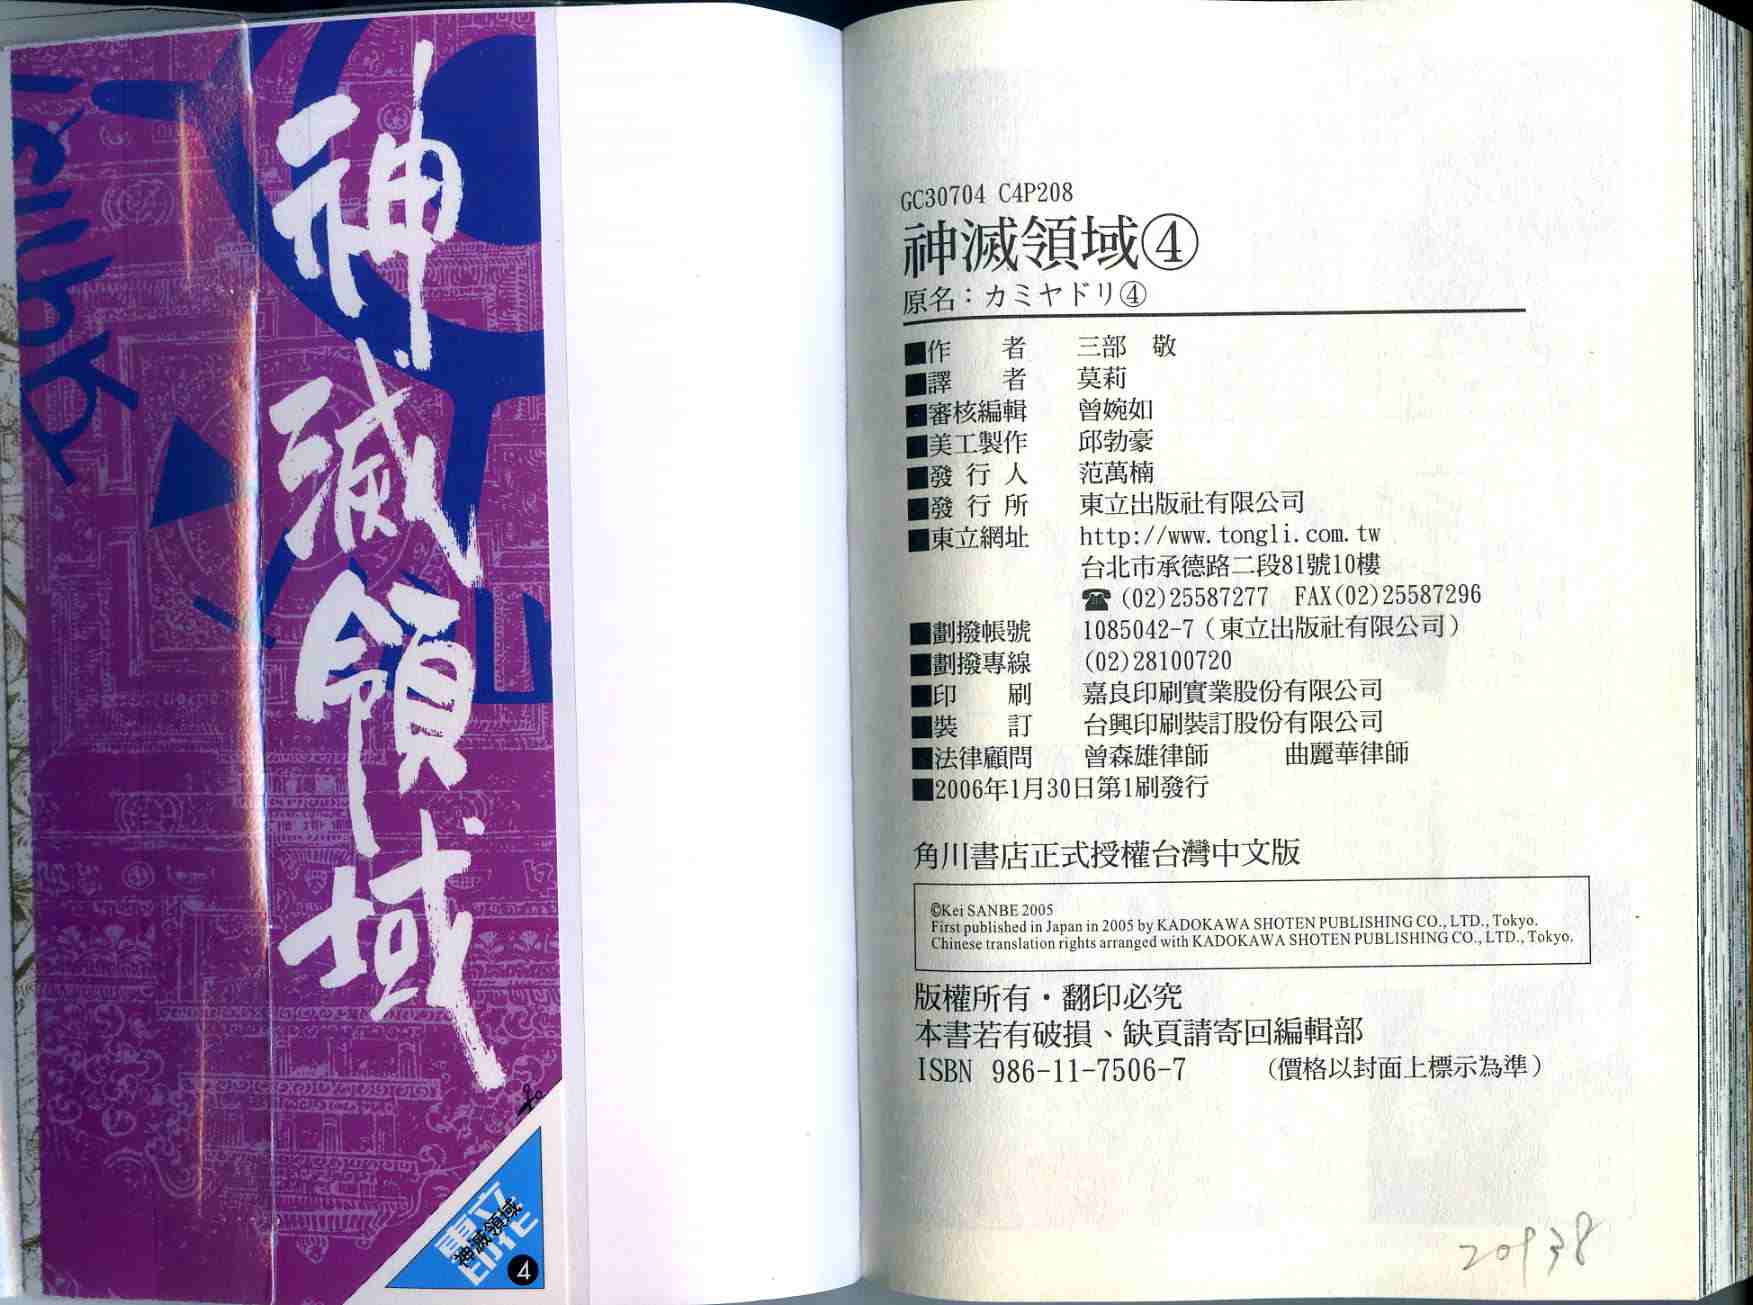 神滅領域
東立
印花
神滅領域
4
GC30704 C4P208
神滅領域④
原名：カミヤドリ④
■作　　者　三部　敬
■譯　　者　莫莉
■審核編輯　曾婉如
■美工製作　邱勃豪
■發 行 人　范萬楠
■發 行 所　東立出版社有限公司
■東立網址　http://www.tongli.com.tw
台北市承德路二段81號10樓
☎(02)25587277　FAX(02)25587296
■劃撥帳號　1085042-7（東立出版社有限公司）
■劃撥專線　(02)28100720
■印　　刷　嘉良印刷實業股份有限公司
■裝　　訂　台興印刷裝訂股份有限公司
■法律顧問　曾森雄律師　　曲麗華律師
■2006年1月30日第1刷發行
角川書店正式授權台灣中文版
©Kei SANBE 2005
First published in Japan in 2005 by KADOKAWA SHOTEN PUBLISHING CO., LTD., Tokyo.
Chinese translation rights arranged with KADOKAWA SHOTEN PUBLISHING CO., LTD., Tokyo.
版權所有・翻印必究
本書若有破損、缺頁請寄回編輯部
ISBN 986-11-7506-7　（價格以封面上標示為準）